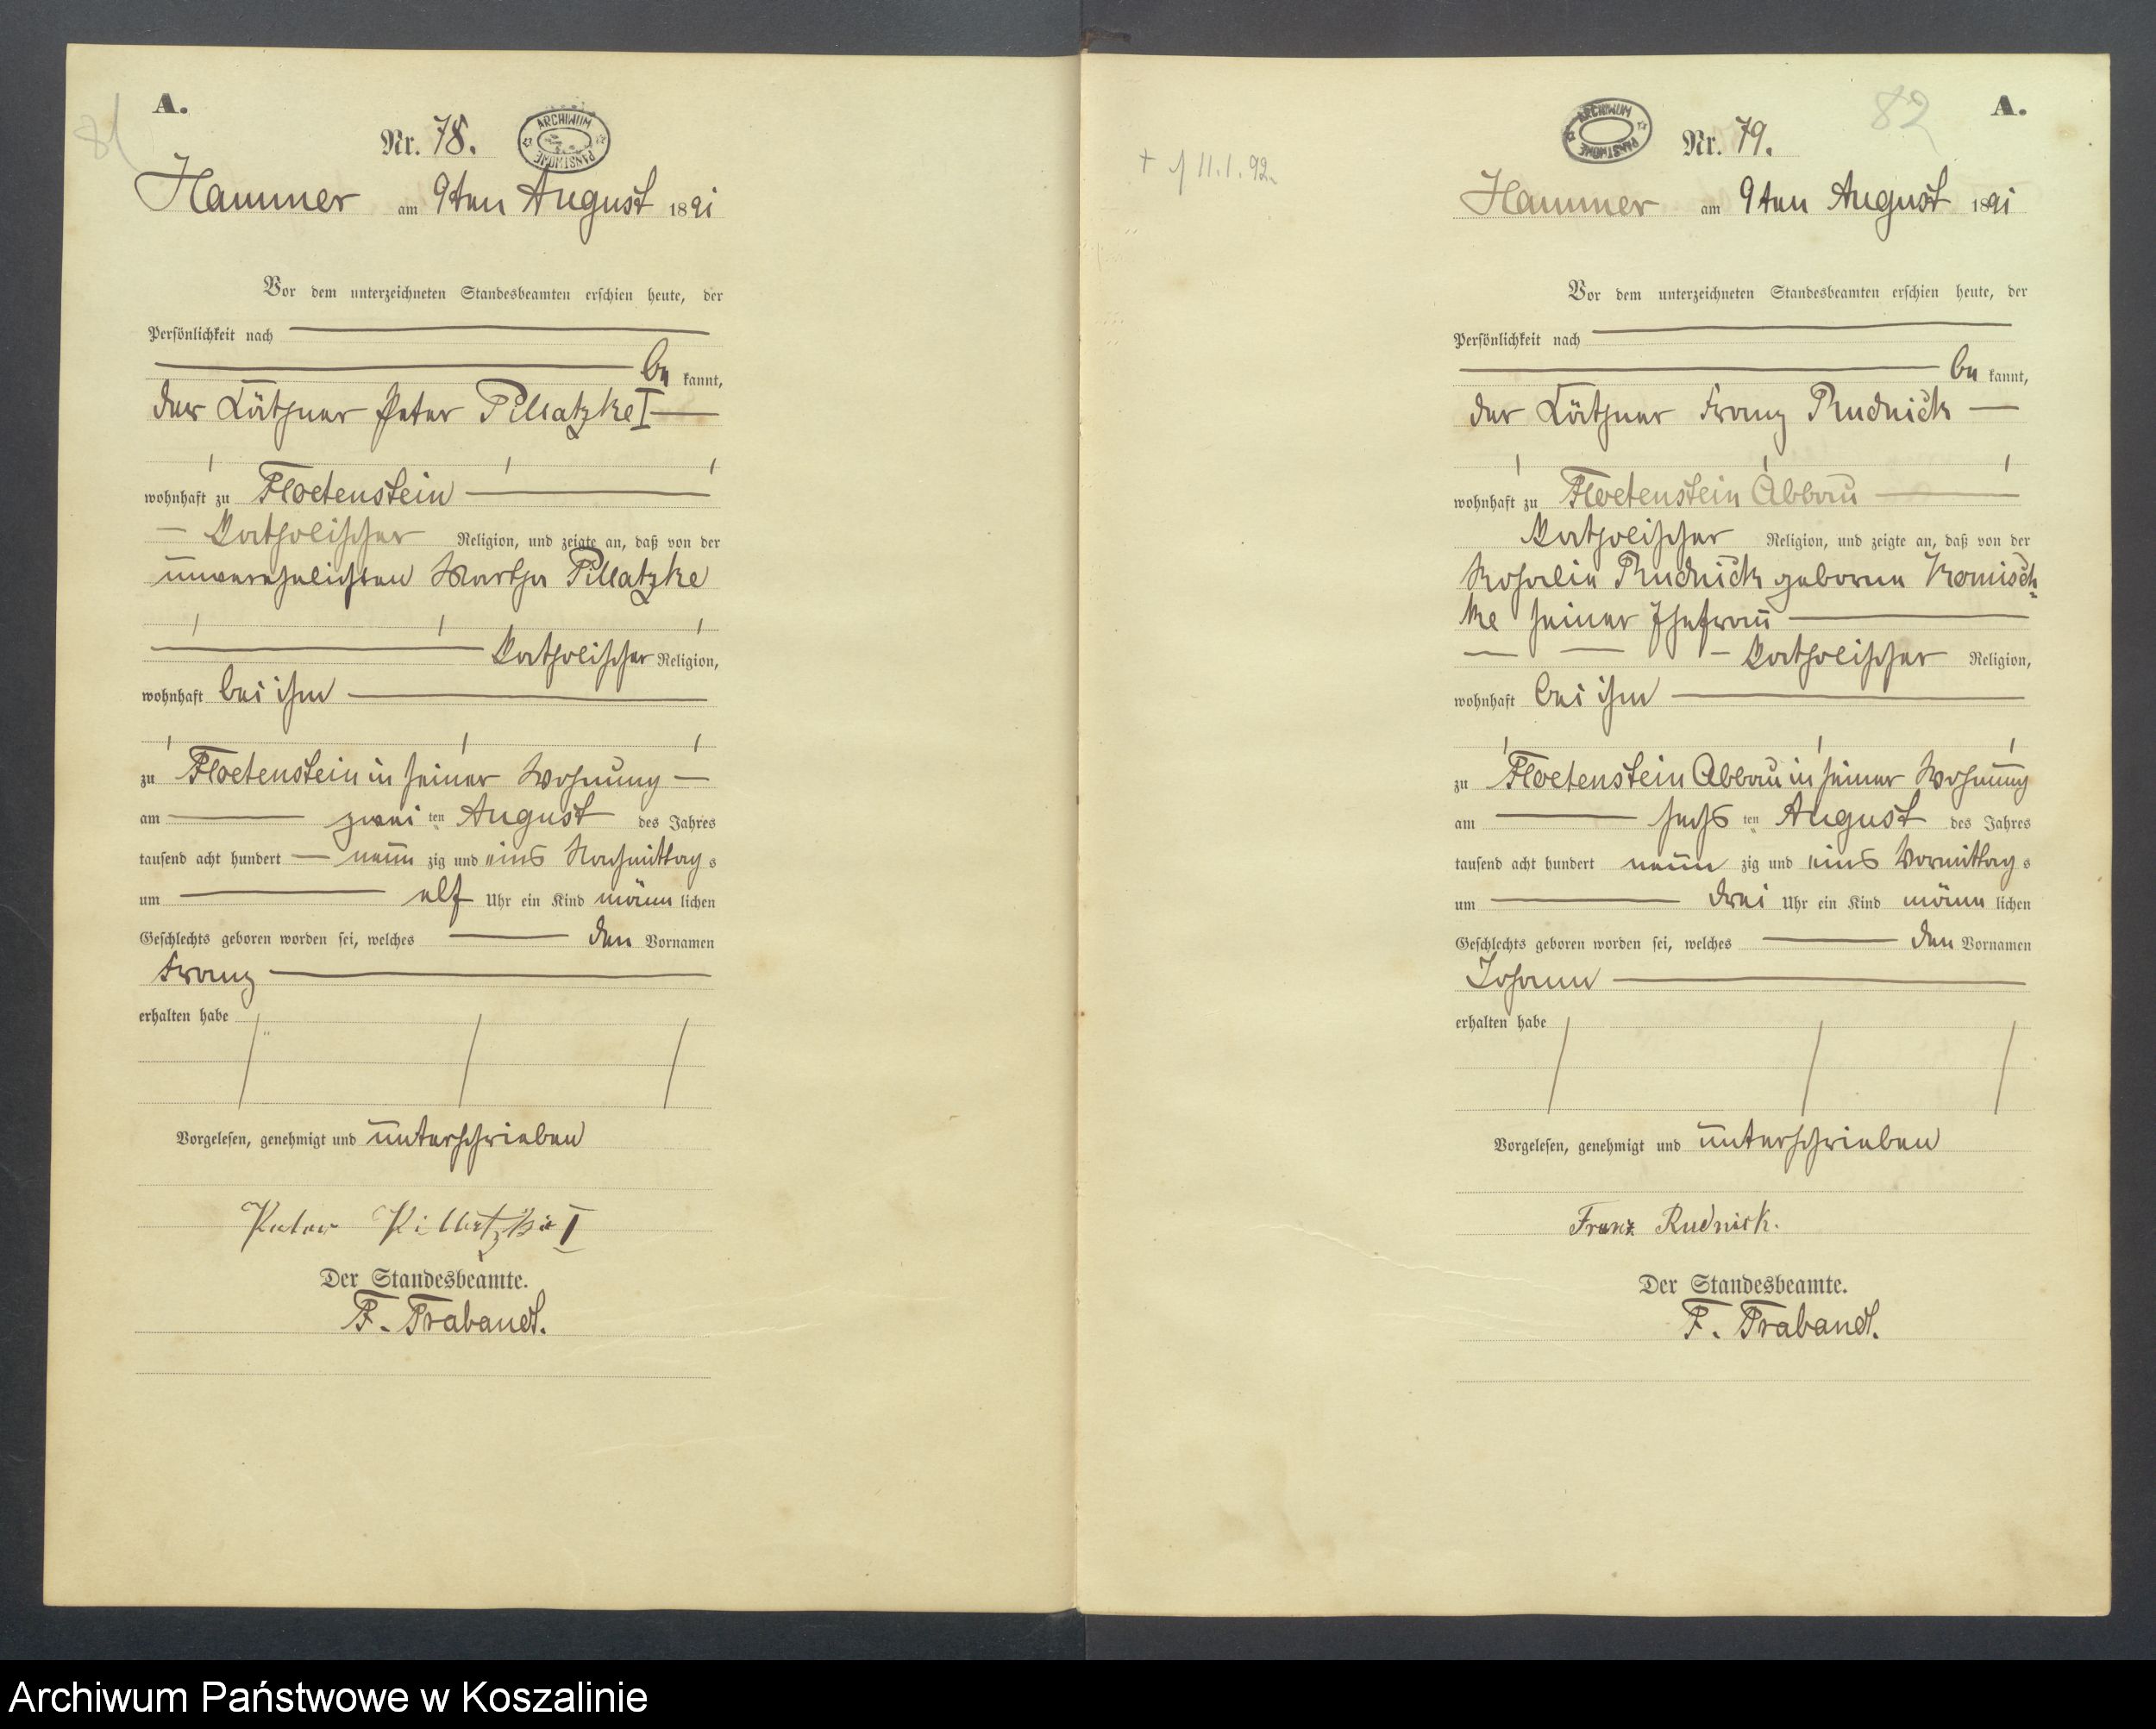 81
A.
Nr. 78.
ARCHIWUM PAŃSTWOWE
Hammer am 9ten August 1891
Vor dem unterzeichneten Standesbeamten erschien heute, der
Persönlichkeit nach
be kannt,
der Käthner Peter Pillatzke I
wohnhaft zu Floetenstein
katholischer Religion, und zeigte an, daß von der
unverehelichten Martha Pillatzke
katholischer Religion,
wohnhaft bei ihm
zu Floetenstein in seiner Wohnung
am zwei ten August des Jahres
tausend acht hundert neun zig und eins Nachmittag s
um elf Uhr ein Kind männ lichen
Geschlechts geboren worden sei, welches den Vornamen
Franz
erhalten habe
Vorgelesen, genehmigt und unterschrieben
Peter Pillatzke I
Der Standesbeamte.
F. Trabandt.
82
A.
ARCHIWUM PAŃSTWOWE
Nr. 79.
+ 11.1.92.
Hammer am 9ten August 1891
Vor dem unterzeichneten Standesbeamten erschien heute, der
Persönlichkeit nach
be kannt,
der Käthner Franz Rudnick
wohnhaft zu Floetenstein Abbau
katholischer Religion, und zeigte an, daß von der
Rosalie Rudnick geborne Komisch=
ke seiner Ehefrau
katholischer Religion,
wohnhaft bei ihm
zu Floetenstein Abbau in seiner Wohnung
am sechs ten August des Jahres
tausend acht hundert neun zig und eins Vormittag s
um drei Uhr ein Kind männ lichen
Geschlechts geboren worden sei, welches den Vornamen
Johann
erhalten habe
Vorgelesen, genehmigt und unterschrieben
Franz Rudnick.
Der Standesbeamte.
F. Trabandt.
Archiwum Państwowe w Koszalinie